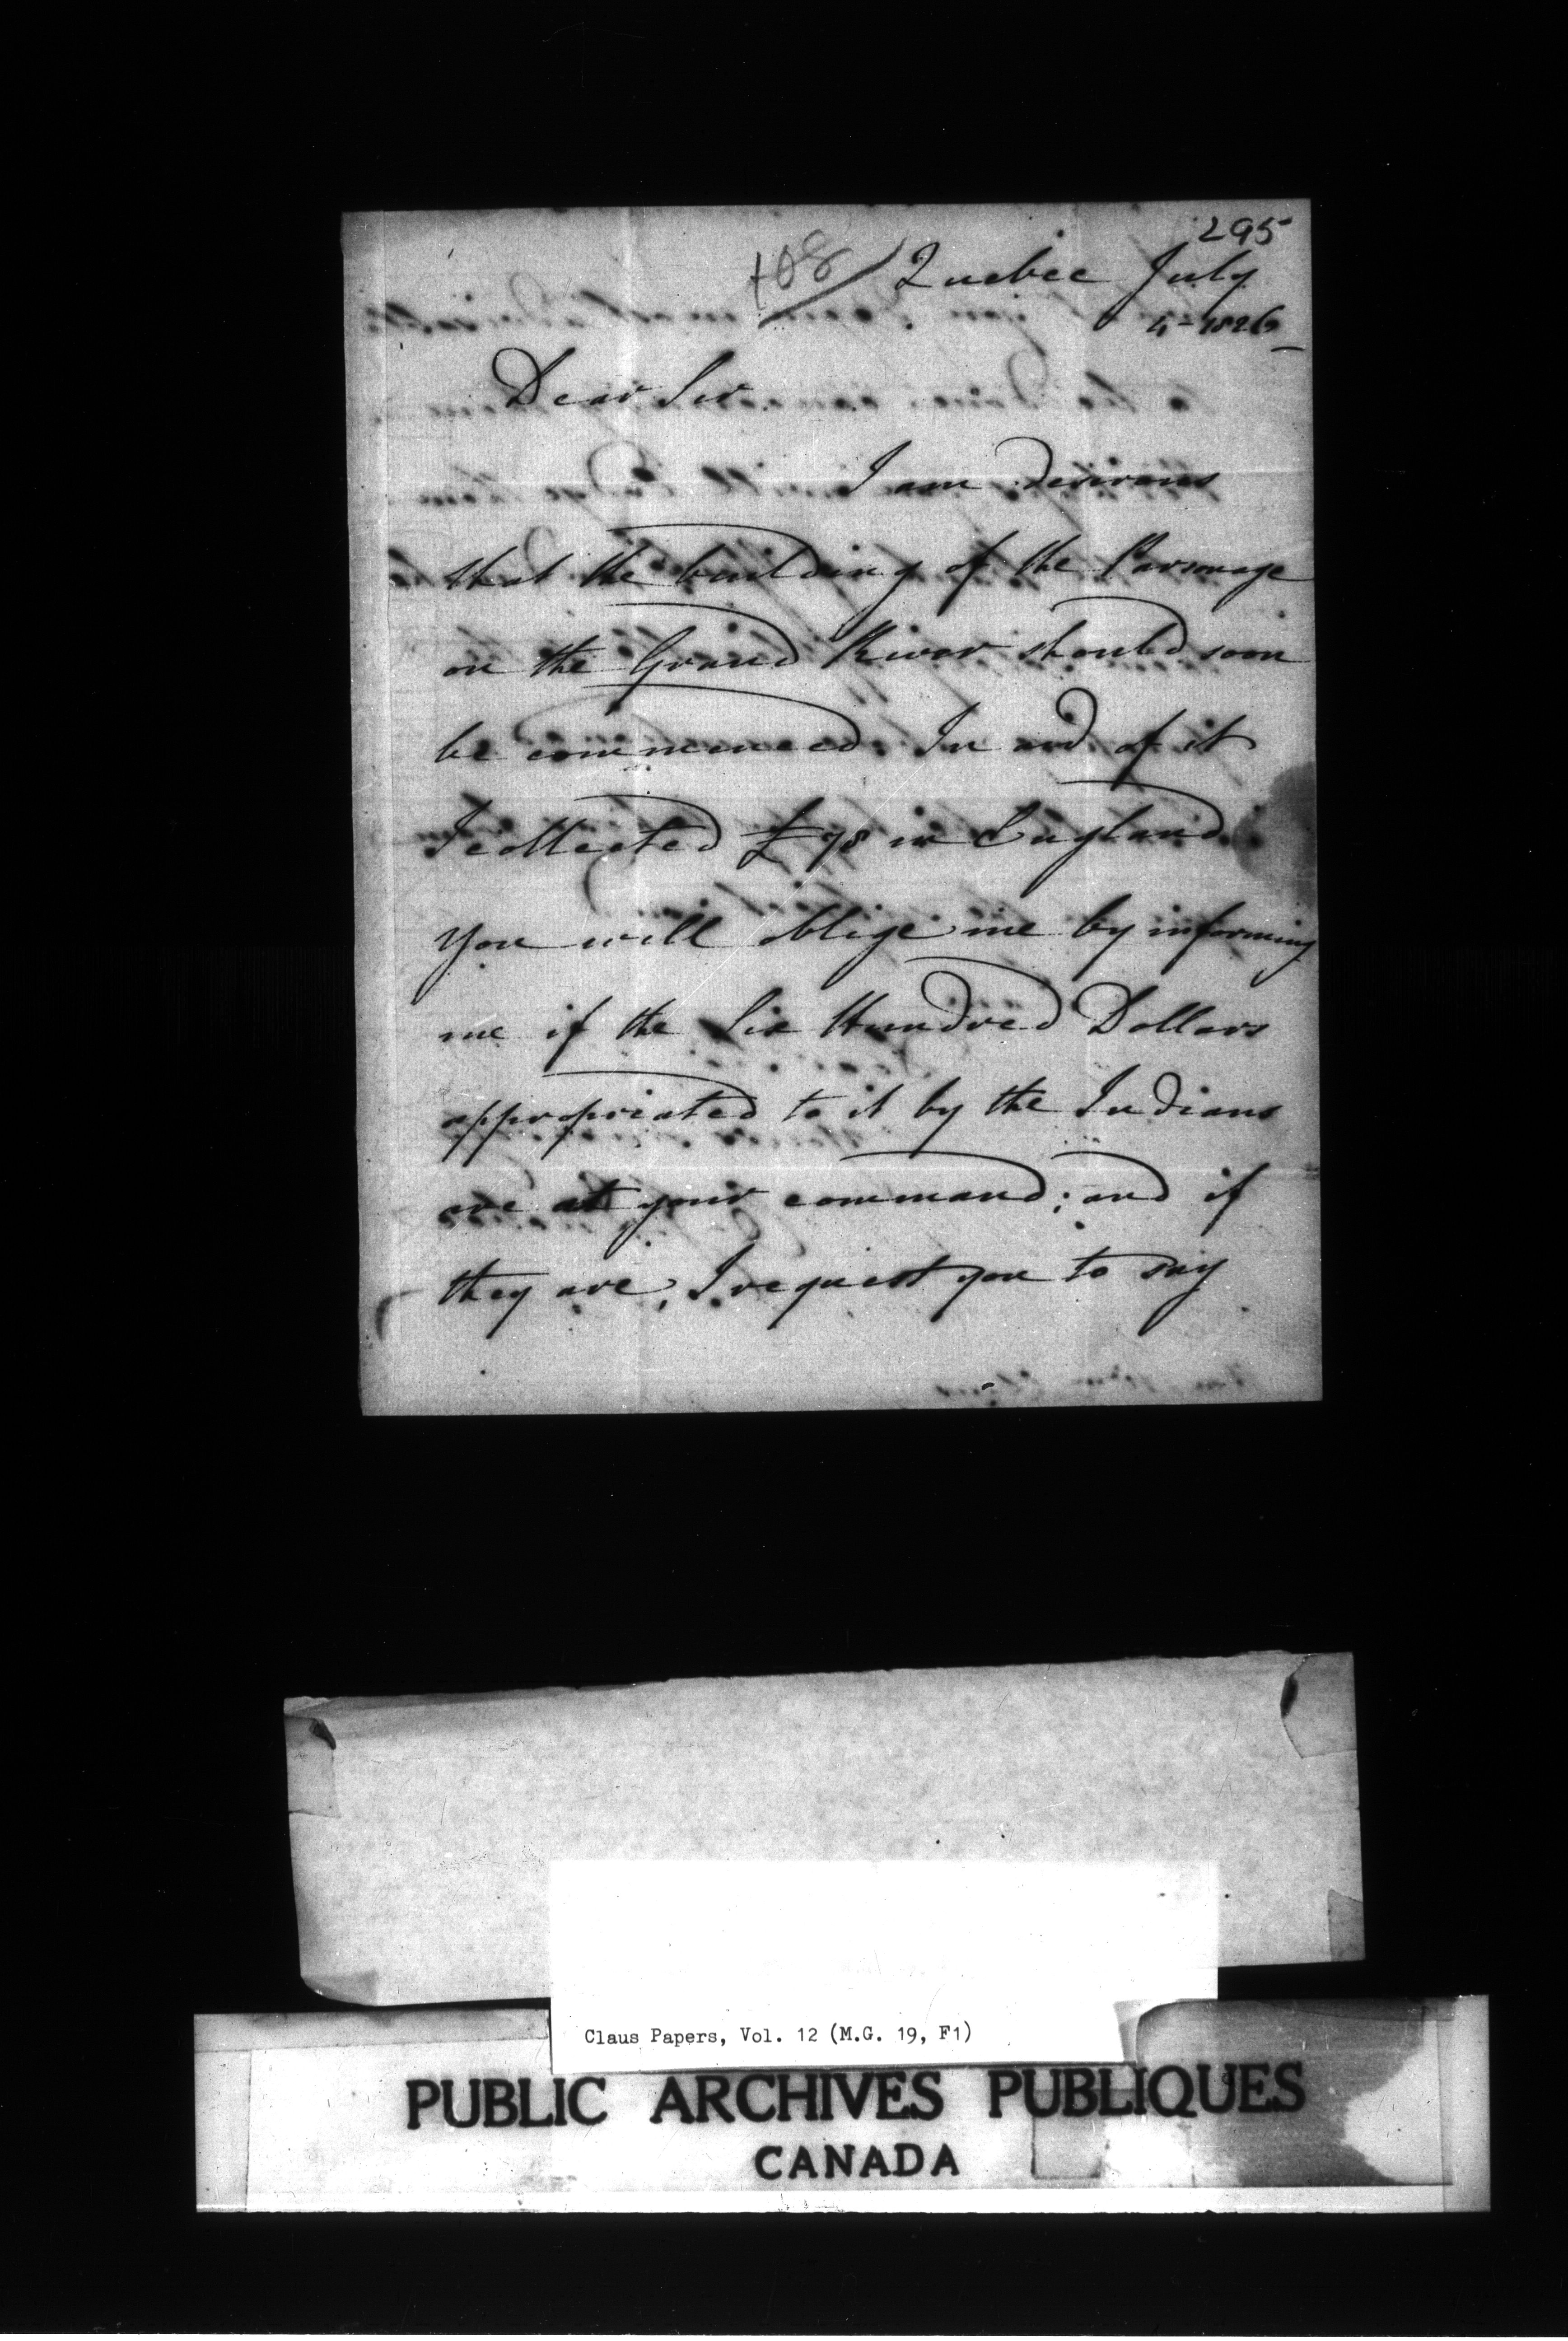 295
108
Quebec July
4 - 1826
Dear Sir
I am desirous
that the building of the Parsonage
on the Grand River should soon
be commenced. In aid of it
I collected £78 in England.
You will oblige me by informing
me if the Six Hundred Dollars
appropriated to it by the Indians
are at your command; and if
they are, I request you to say
Claus Papers, Vol. 12 (M.G. 19, F1)
PUBLIC ARCHIVES PUBLIQUES
CANADA